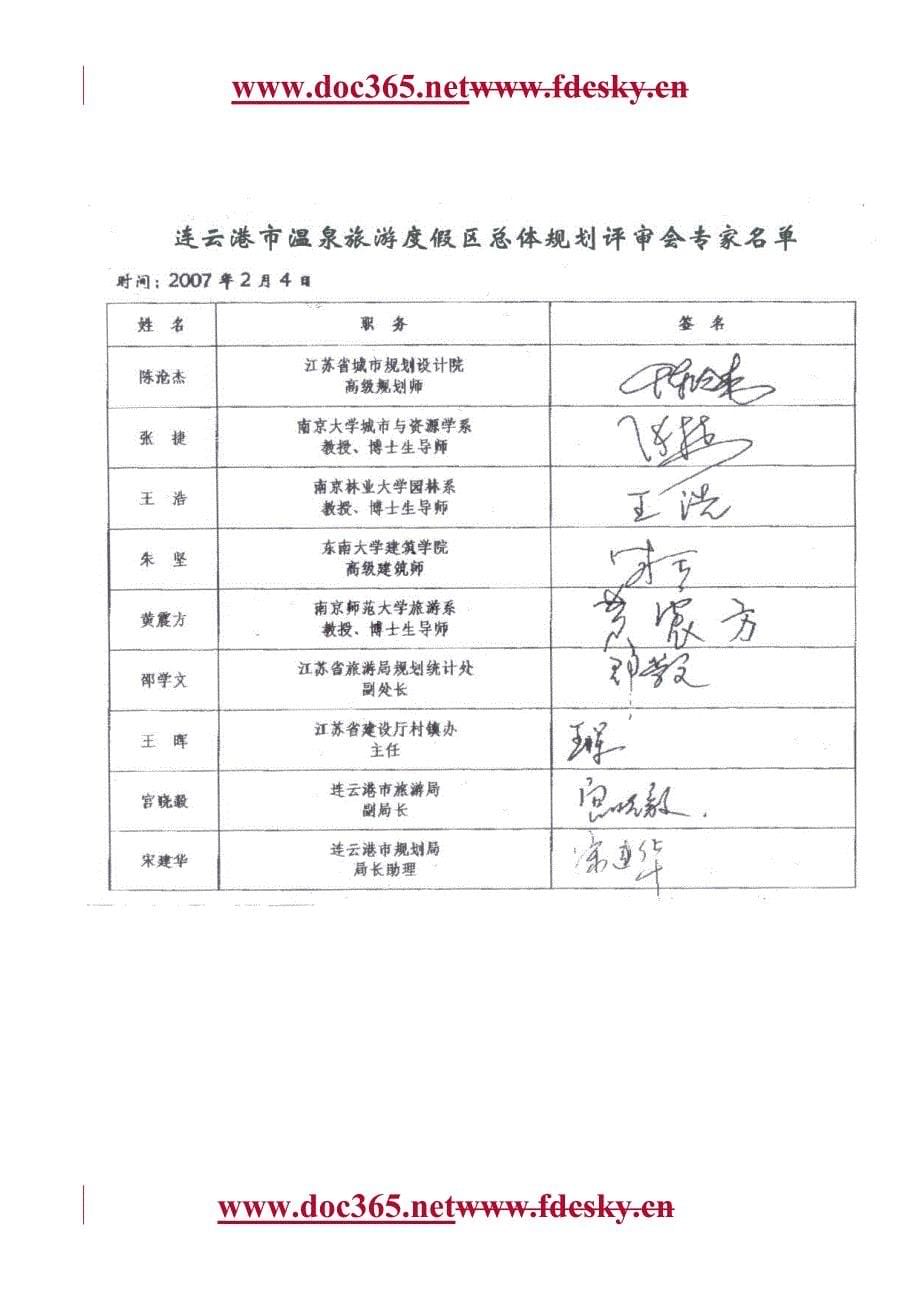 www.doc365.netwww.fdcsky.cn
连云港市温泉旅游度假区总体规划评审会专家名单
时间：2007年2月4日
姓名 职务 签名
陈沧杰 江苏省城市规划设计院 陈沧杰
高级规划师
张捷 南京大学城市与资源学系 张捷
教授、博士生导师
王浩 南京林业大学园林系 王浩
教授、博士生导师
朱坚 东南大学建筑学院
高级建筑师
黄震方 南京师范大学旅游系 黄震方
教授、博士生导师
邵学文 江苏省旅游局规划统计处 邵学文
副处长
王晖 江苏省建设厅村镇办 王晖
主任
宫晓毅 连云港市旅游局 宫晓毅
副局长
宋建华 连云港市规划局 宋建华
局长助理
www.doc365.netwww.fdcsky.cn